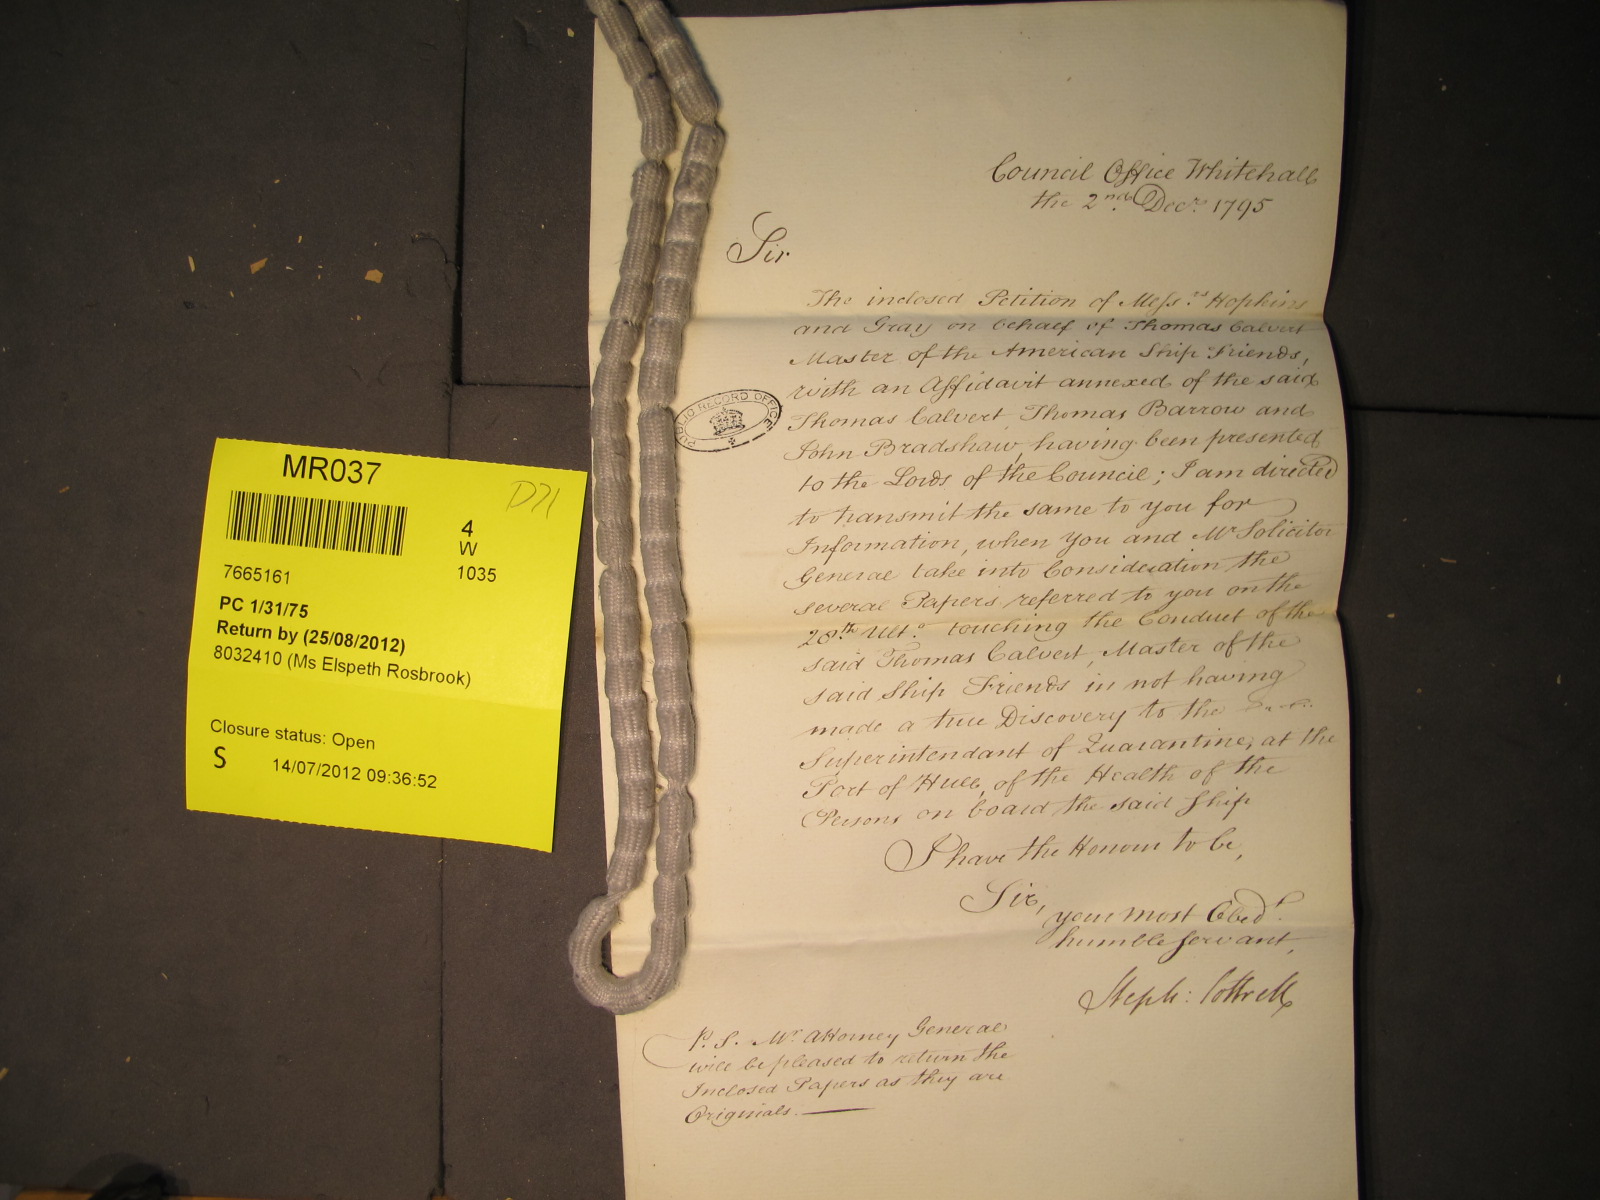 Council Office Whitehall
the 2nd. Decr. 1795
Sir
The inclosed Petition of Messrs. Hopkins
and Gray on behalf of Thomas Calvert
Master of the American Ship Friends,
with an Affidavit annexed of the said
Thomas Calvert, Thomas Barrow and
John Bradshaw, having been presented
to the Lords of the Council; I am directed
to transmit the same to you for
Information, when you and Mr Solicitor
General take into Consideration the
several Papers referred to you on the
28th. Ulto. touching the Conduct of the
said Thomas Calvert, Master of the
said Ship Friends in not having
made a true Discovery to the
Superintendant of Quarantine, at the
Port of Hull, of the Health of the
Persons on board the said Ship
I have the Honour to be,
Sir,
your most Obedt.
humble Servant,
Steph: Cottrell
P.S. Mr. Attorney General
will be pleased to return the
Inclosed Papers as they are
Originals.
PUBLIC RECORD OFFICE
MR037
D71
4
W
1035
7665161
PC 1/31/75
Return by (25/08/2012)
8032410 (Ms Elspeth Rosbrook)
Closure status: Open
S
14/07/2012 09:36:52